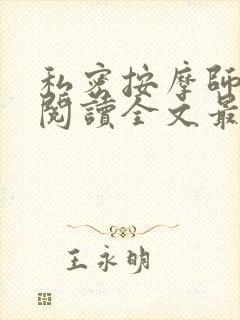 私密按摩師
閱讀全文最
王永明